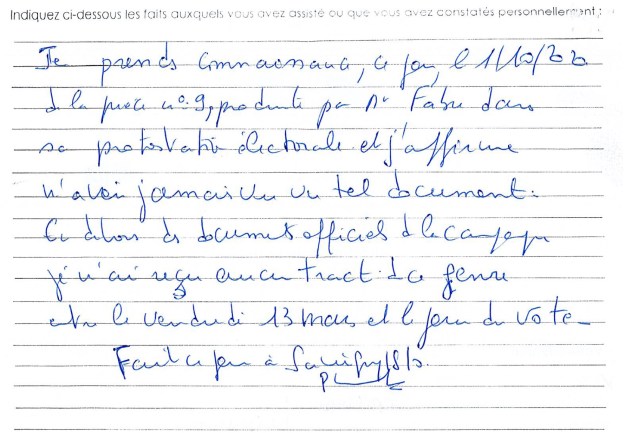 Indiquez ci-dessous les faits auxquels vous avez assisté ou que vous avez constatés personnellement :
Je prends connaissance, ce jour, le 1/10/20
de la pièce n°9, produite par Mr Fabre dans
sa protestation électorale et j'affirme
n'avoir jamais vu un tel document.
En dehors des documents officiels de la campagne
je n'ai reçu aucun tract de ce genre
entre le vendredi 13 mars et le jour du vote
Fait ce jour à Savigny/S/O.